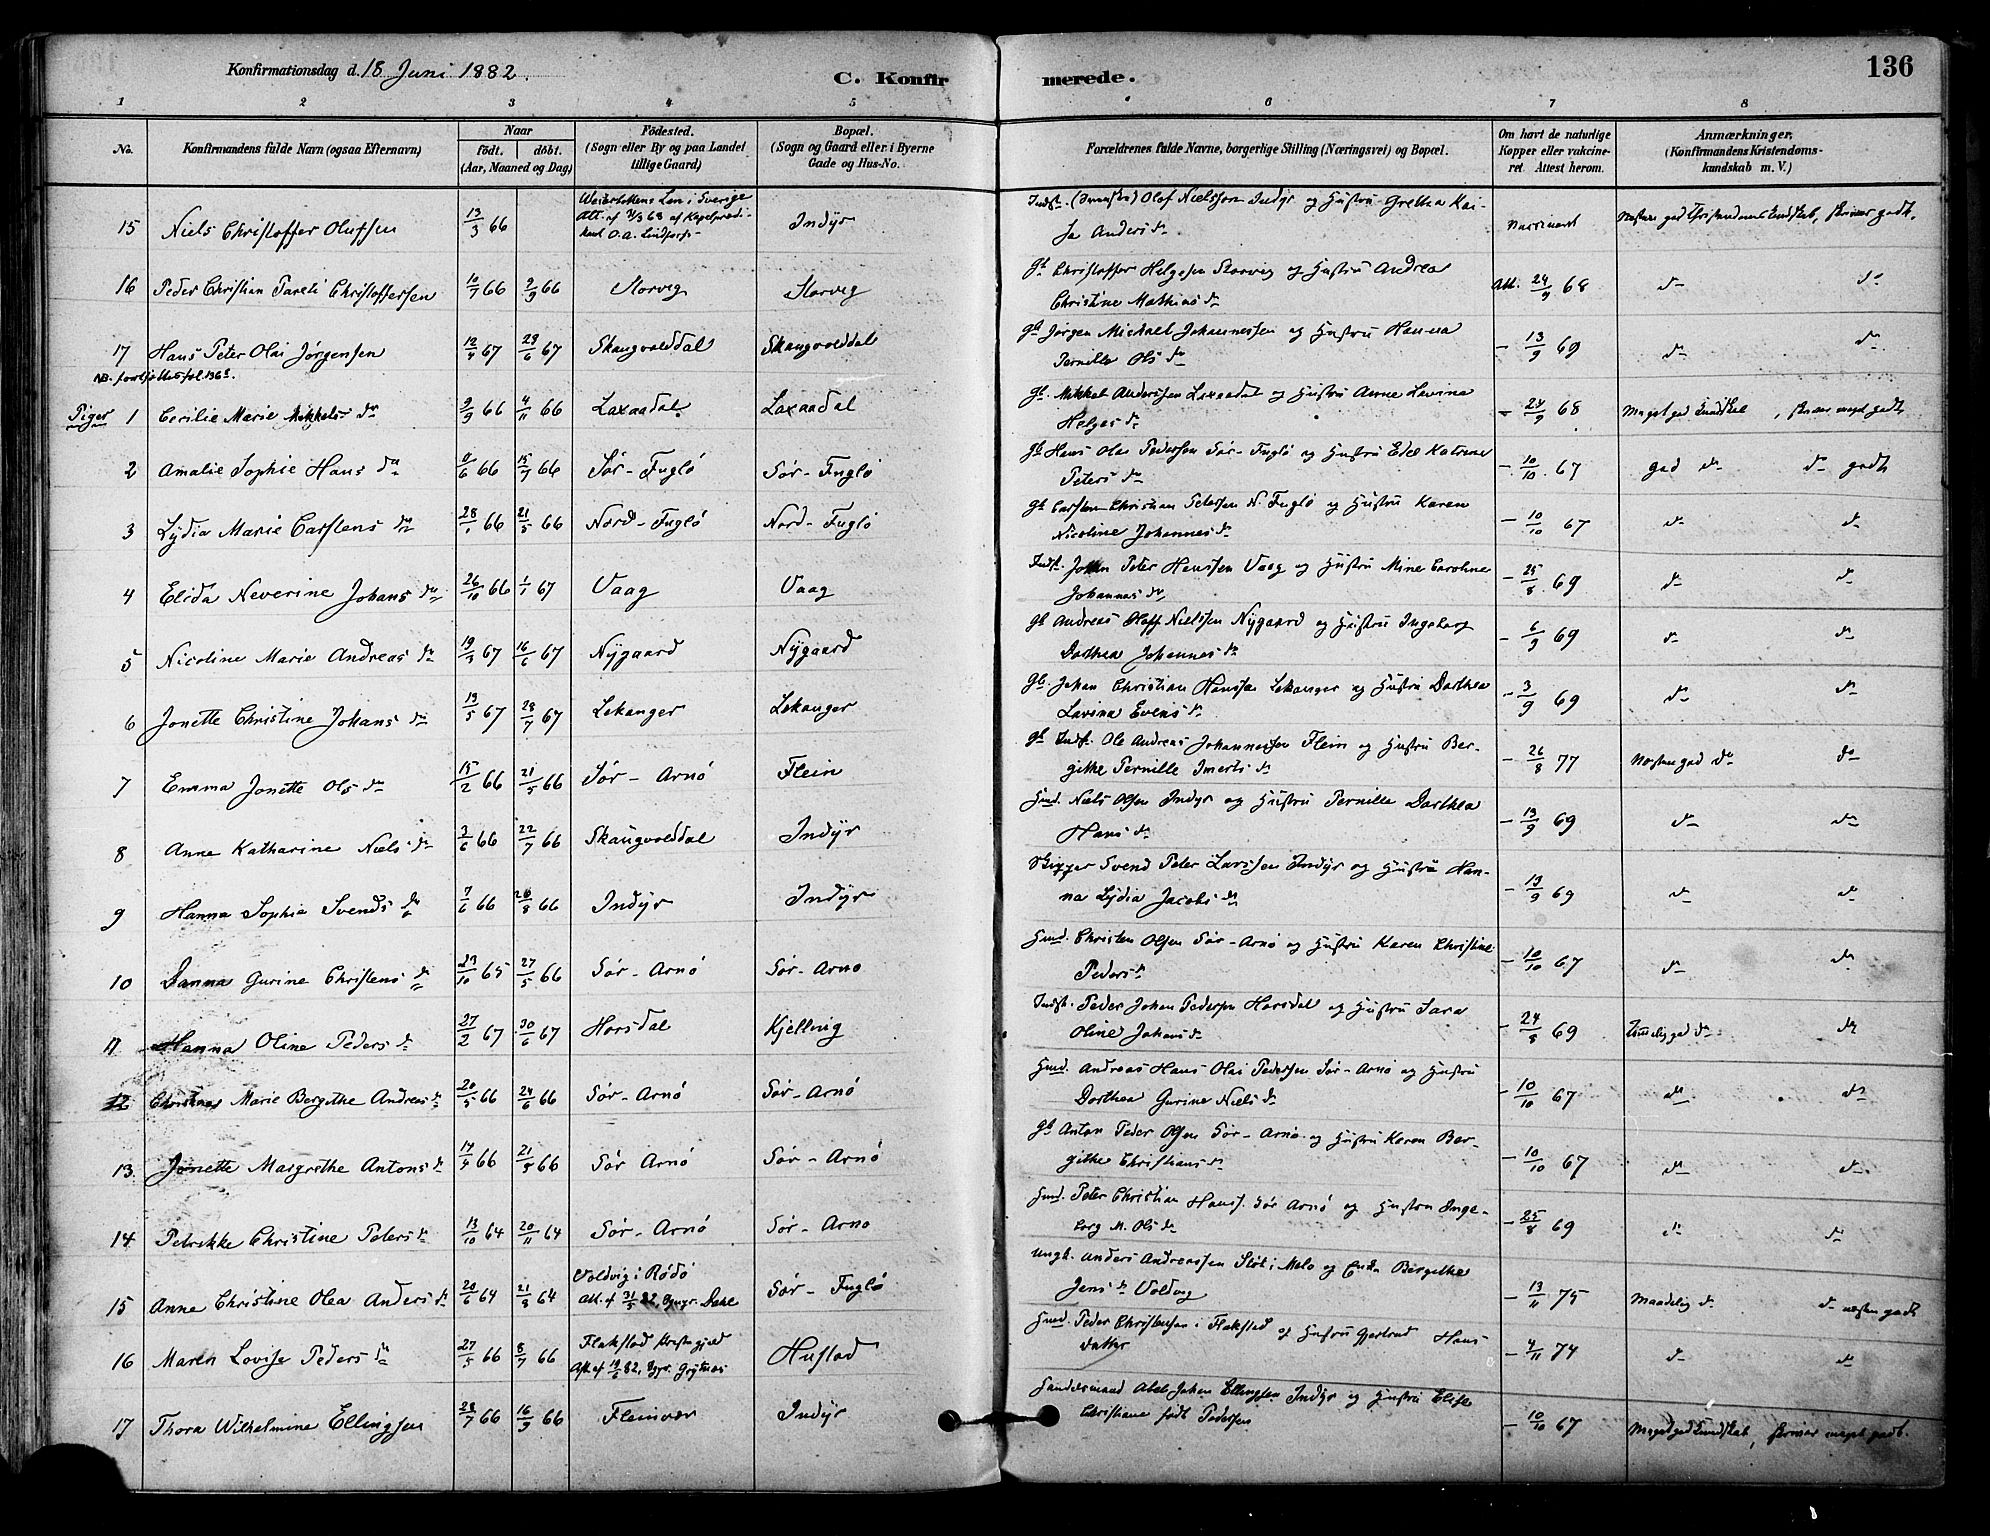 Konfirmationsdag d. 18 Juni 1882.
C. Konfirmerede.
136
1 2 3 4 5 6 7 8
No.
Konfirmandens fulde Navn (ogsaa Efternavn)
Naar
født. døbt.
(Aar, Maaned og Dag)
Fødested.
(Sogn eller By og paa Landet
tillige Gaard)
Bopæl.
(Sogn og Gaard eller i Byerne
Gade og Hus-No.
Forældrenes fulde Navne, borgerlige Stilling (Næringsvei) og Bopæl.
Om havt de naturlige
Kopper eller vakcine-
ret. Attest herom.
Anmærkninger.
(Konfirmandens Kristendoms-
kundskab m. V.)
15 Niels Christoffer Olufsen 13/3 66 Indyr Indst. Olof Nielsson Indyr og Hustru Grethe Kai-
sa Anders dr
16 Peder Christian Pareli Christoffersen 10/7 66 2/9 66 Storvig Storvig Gb. Christoffer Helgesen Storvig og Hustru Andrea
Christine Mathias dr Att. 24/9 68 dr dr
17 Hans Peter Olai Jørgensen 12/4 67 23/6 67 Skaugvolddal Skaugvolddal Gb Jørgen Mickael Johannessen og Hustru Hanna
Pernille Ols dr - 13/9 69 dr dr
Piger 1 Cecilie Marie Mekkels dr 9/9 66 4/11 66 Laxaadal Laxaadal Gb. Mikkel Anderssen Laxaadal og Hustru Anne Lavina
Helges dr - 24/9 68 Meget god Kundskab, skriver meget godt
2 Amalie Sophie Hans dr 9/6 66 15/7 66 Sør-Fuglø Sør-Fuglø Gb Hans Olai Pedersen Sør-Fuglø og Hustru Edel Katrine
Peters dr - 10/10 67 god dr dr godt
3 Lydia Marie Carstens dr 28/1 66 21/5 66 Nord-Fuglø Nord-Fuglø Gb Carsten Christian Petersen N. Fuglø og Hustru Karen
Nicoline Johannes dr - 10/10 67 dr dr
4 Elida Neverine Johans dr 26/10 66 1/1 67 Vaag Vaag Indst. Johan Peter Hanssen Vaag og Hustru Mine Caroline
Johannes dr - 25/8 69 dr dr
5 Nicoline Marie Andreas dr 19/3 67 16/6 67 Nygaard Nygaard Gb Andreas Oluff Nielssen Nygaard og Hustru Ingeborg
Dorthea Johannes dr - 6/9 69 dr dr
6 Jonette Christine Johans dr 13/5 67 28/7 67 Lekanger Lekanger Gb. Johan Christian Hanssen Lekanger og Hustru Dorthea
Lavina Evens dr - 3/9 69 dr dr
7 Emma Jonette Ols dr 15/2 66 21/5 66 Sør-Arnø Flein Indst. Ole Andreas Johannessen Flein og Hustru Ber-
githe Pernille Imerts dr - 26/8 77 Næsten god dr dr
8 Anne Katharine Niels dr 3/6 66 22/7 66 Skaugvolddal Indyr Hmd. Niels Olsen Indyr og Hustru Pernille Dorthea
Hans dr - 13/9 69 dr dr
9 Hanna Sophie Svends dr 7/6 66 26/8 66 Indyr Indyr Skipper Svend Peter Larssen Indyr og Hustru Han-
na Lydia Jacobs dr - 13/9 69 dr dr
10 Danna Gurine Christens dr 23/10 65 27/5 66 Sør-Arnø Sør-Arnø Hmd. Christen Olsen Sør-Arnø og Hustru Karen Christine
Peders dr - 10/10 67 dr dr
11 Hanna Oline Peders dr 27/2 67 30/6 67 Horsdal Kjelling Indst. Peder Johan Pedersen Horsdal og Hustru Sara
Oline Johans dr - 24/8 69 Temmelig god dr dr
12 Christine Marie Bergithe Andreas dr 20/5 66 24/6 66 Sør-Arnø Sør-Arnø Hmd. Andreas Hans Olai Pedersen Sør-Arnø og Hustru
Dorthea Gurine Niels dr - 10/10 67 dr dr
13 Jonette Margrethe Antons dr 17/4 66 21/5 66 Sør Arnø Sør-Arnø Gb Anton Peder Olsen Sør-Arnø og Hustru Karen Ber-
githe Christians dr - 10/10 67 dr dr
14 Petrikke Christine Peters dr 13/10 64 20/11 64 Sør-Arnø Sør-Arnø Hmd. Peter Christian Hanss. Sør Arnø og Hustru Inge-
borg M. Ols dr - 25/8 69 dr dr
15 Anne Christine Olea Anders dr 20/6 64 21/8 64 Voldvig i Rødø
Att. af 31/5 82, Dahl Sør-Fuglø Ungk. Anders Andreassen Støt i Melø og Bergithe
Jens dr Voldvig - 13/11 75 Maadelig dr dr næsten godt
16 Maren Lovise Peders dr 27/5 66 8/7 66 Flakstad Prestegjeld
Att. af 19/6 82, Grytnæs Hustad Hmd. Peder Christensen i Flakstad og Hustru Gjertrud Hans
datter - 4/11 74 dr dr
17 Thora Wilhelmine Ellingsen 28/7 66 16/9 66 Fleinvær Indyr Handelsmand Abel Johan Ellingsen Indyr og Hustru Elise
Christiane født Pedersen - 10/10 67 Meget god Kundskab, skriver meget godt.